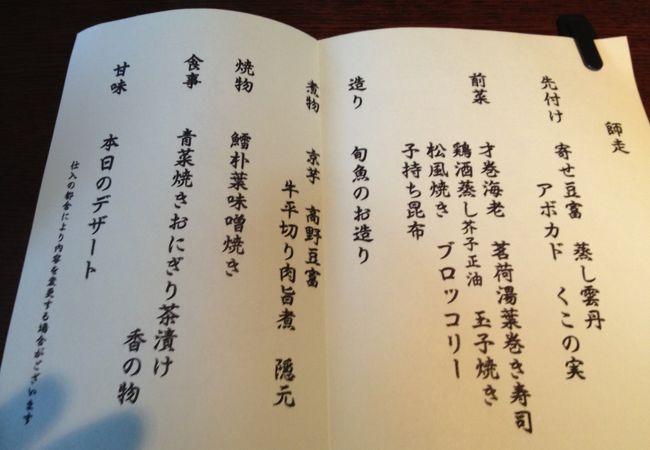 師走
先付け 寄せ豆富 蒸し雲丹
アボカド くこの実
前菜 才巻海老 茗荷湯葉巻き寿司
鶏酒蒸し芥子正油 玉子焼き
松風焼き ブロッコリー
子持ち昆布
造り 旬魚のお造り
煮物 京芋 高野豆富
牛平切り肉旨煮 隠元
焼物 鱈朴葉味噌焼き
食事 青菜焼きおにぎり茶漬け
香の物
甘味 本日のデザート
仕入の都合により内容を変更する場合がございます